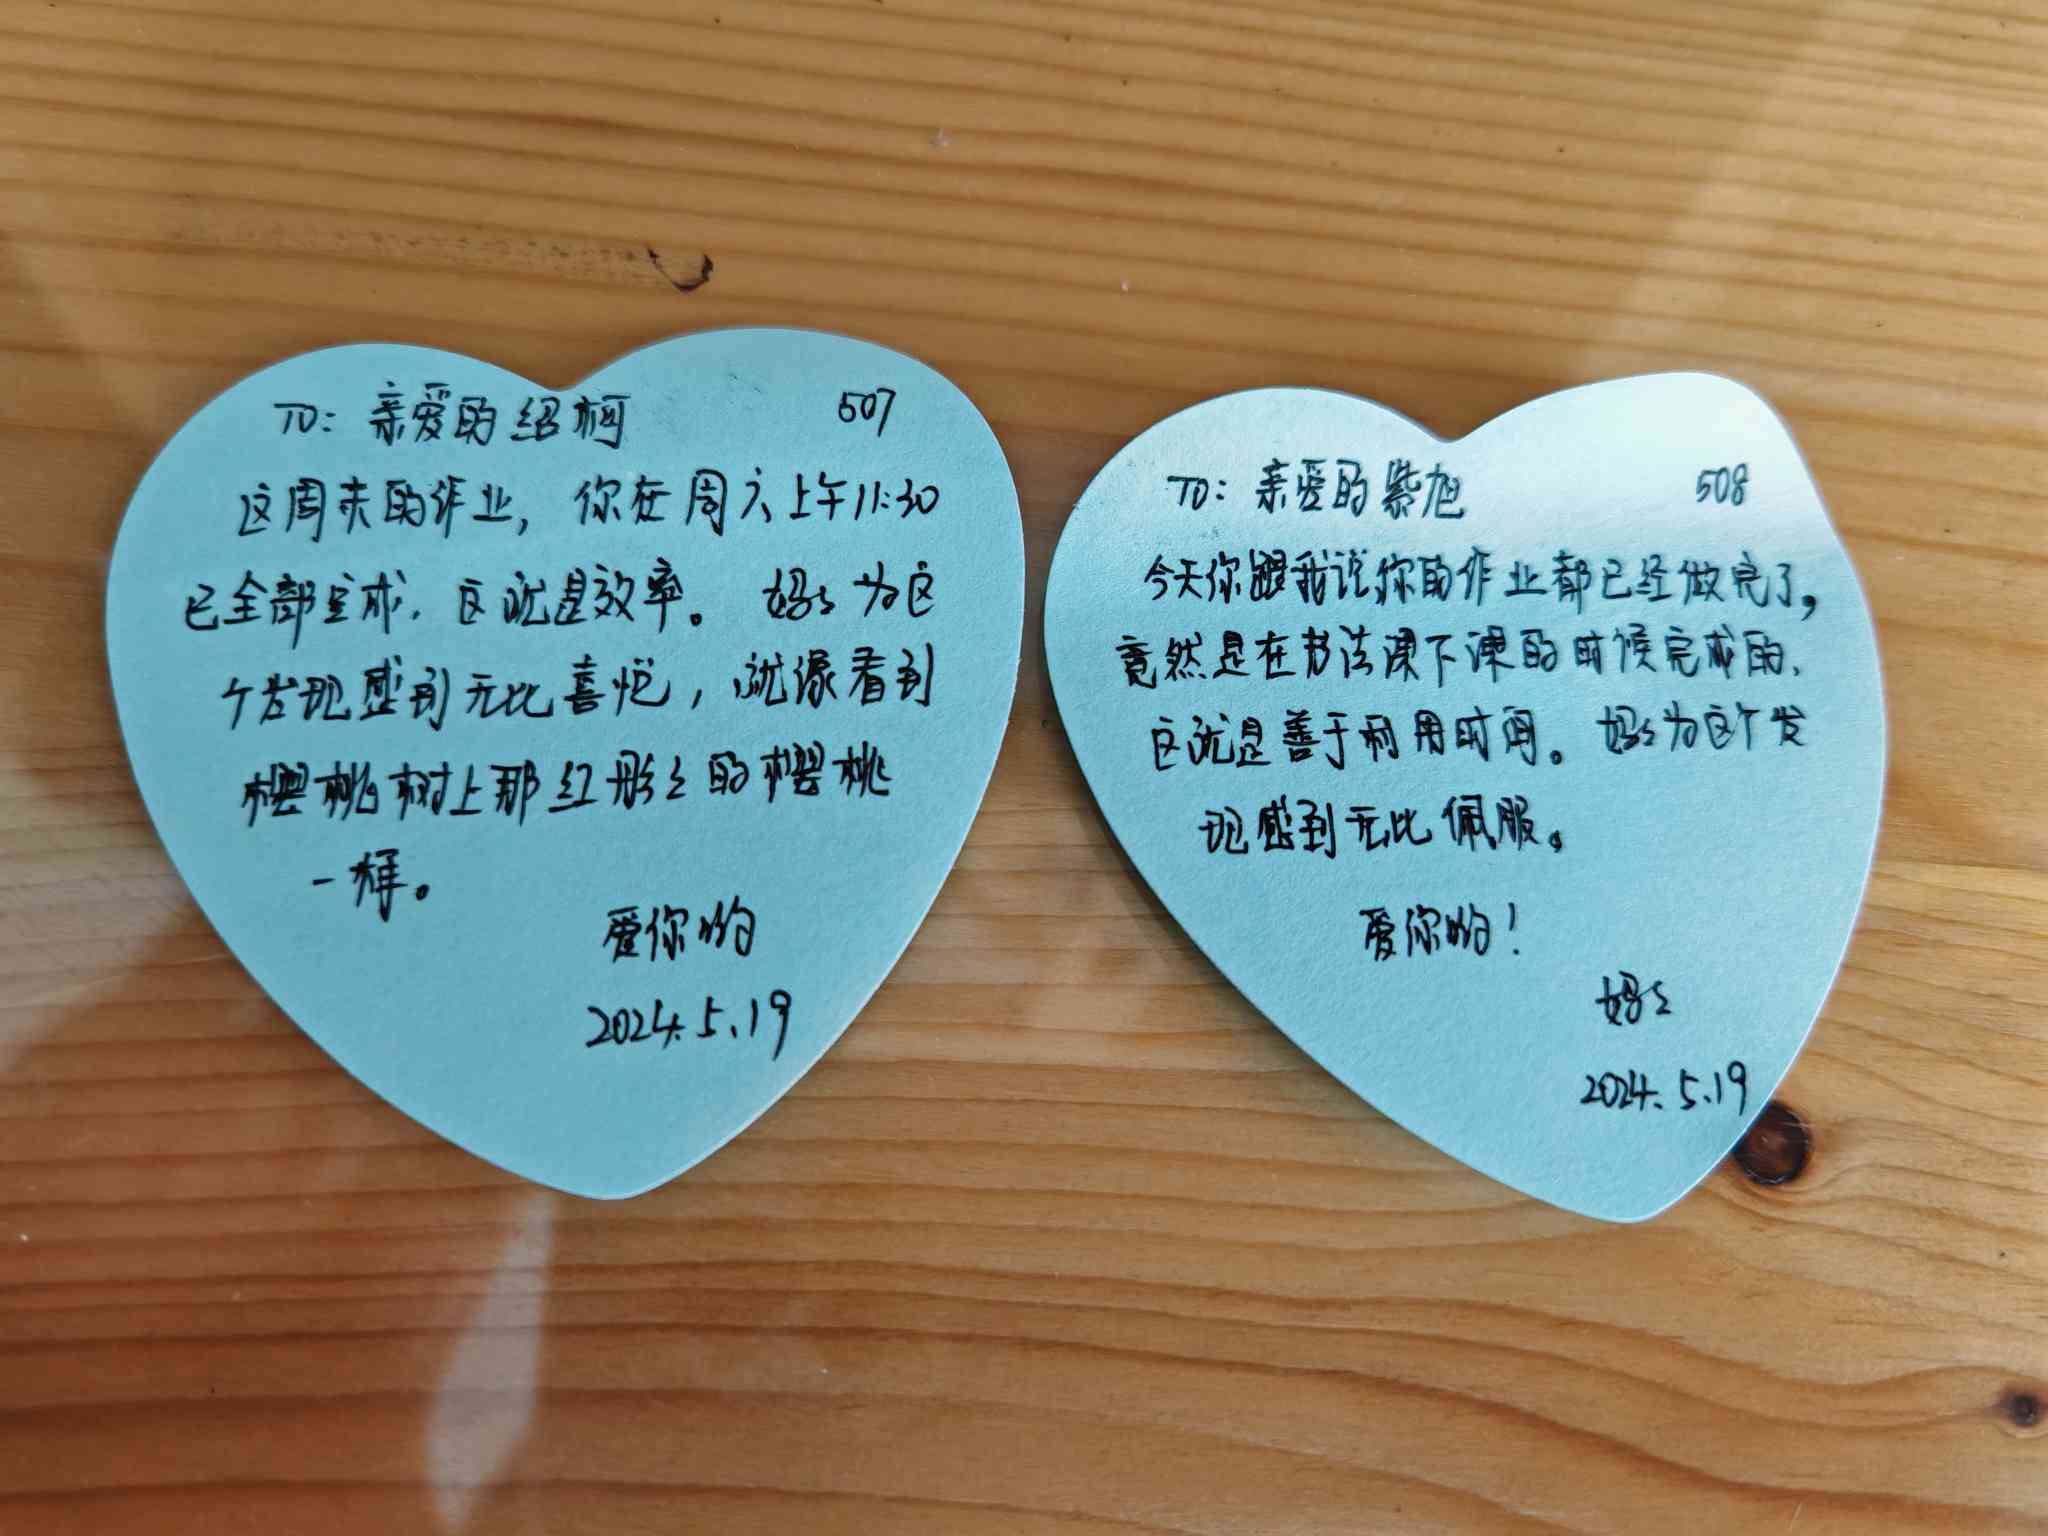 TO: 亲爱的绍柯 507
这周末的作业, 你在周六上午11:30
已全部完成, 这就是效率。妈妈为这
个发现感到无比喜悦, 就像看到
樱桃树上那红彤彤的樱桃
一样。
爱你哟
2024.5.19
TO: 亲爱的紫旭 508
今天你跟我说你的作业都已经做完了,
竟然是在书法课下课的时候完成的,
这就是善于利用时间。妈妈为这个发
现感到无比佩服。
爱你哟!
妈妈
2024.5.19